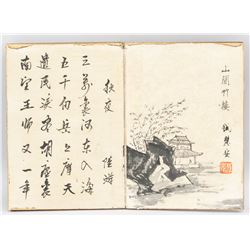 山閣竹樓
秋夜 陸游
三萬裏河東入海
五千仞岳上摩天
遺民淚盡胡塵裏
南望王師又一年